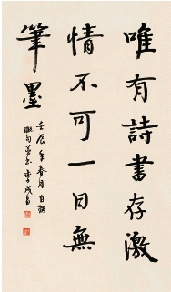 唯有詩書存激
情不可一日無
筆墨
壬辰年春月自